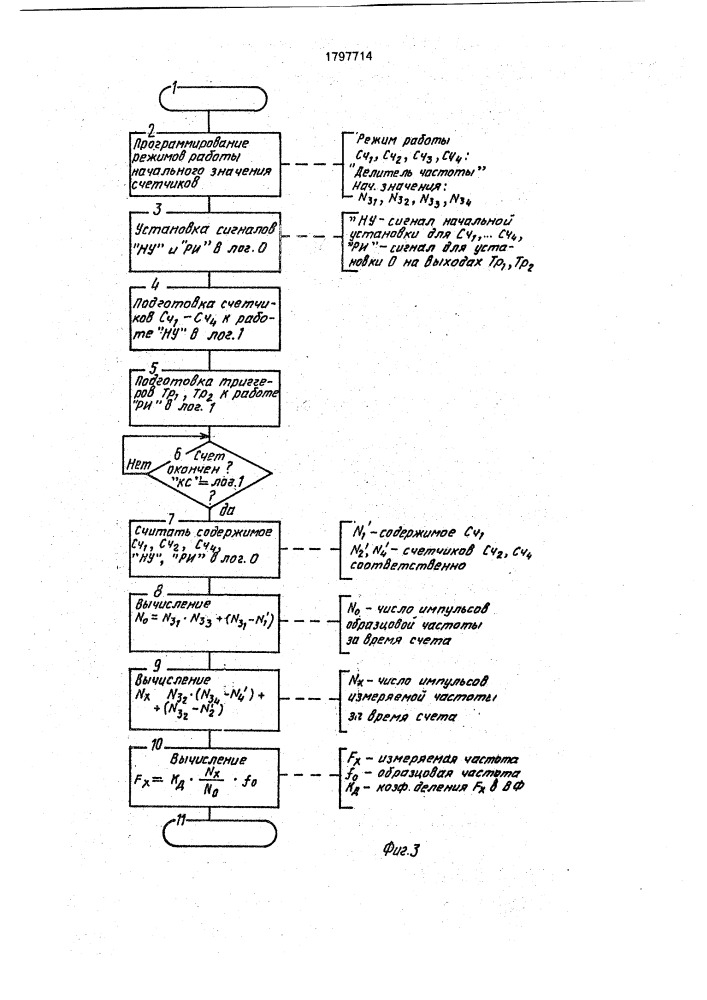 1797714
1
2
Программирование
режимов работы
начального значения
счетчиков
Режим работы
Сч₁, Сч₂, Сч₃, Сч₄:
"Делитель частоты"
Нач. значения:
N₃₁, N₃₂, N₃₃, N₃₄
3
Установка сигналов
"НУ" и "РИ" в лог. 0
"НУ-сигнал начальной
установки для Сч₁,... Сч₄,
"РИ"-сигнал для уста-
новки 0 на выходах Тр₁, Тр₂
4
Подготовка счетчи-
ков Сч₁ - Сч₄ к рабо-
те "НУ" в лог. 1
5
Подготовка тригге-
ров Тр₁, Тр₂ к работе
"РИ" в лог. 1
6 Счет
Нет
окончен ?
"КС"= лог. 1
?
да
7
Считать содержимое
Сч₁, Сч₂, Сч₄,
"НУ", "РИ" в лог. 0
N₁' - содержимое Сч₁
N₂', N₄' - счетчиков Сч₂, Сч₄
соответственно
8
Вычисление
N₀ = N₃₁ · N₃₃ + (N₃₁ - N₁')
N₀ - число импульсов
образцовой частоты
за время счета
9
Вычисление
Nх N₃₂ · (N₃₄ - N₄') +
+ (N₃₂ - N₂')
Nх - число импульсов
измеряемой частоты
за время счета
10
Вычисление
Fх = Kд · Nх/N₀ · f₀
Fх - измеряемая частота
f₀ - образцовая частота
Kд - коэф. деления Fх в ВФ
11
Фиг.3